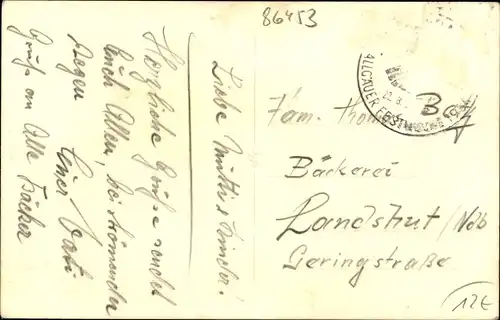 86453
Liebe Mutti u. Kinder!
Herzliche Grüße sendet
Euch Allen, bei strömenden
Regen Euer Vati
Gruß an Alle Bäcker
ALLGÄUER FESTWOCHE
Fam. Thom
Bäckerei
Landshut / Ndb
Geringstraße
12€